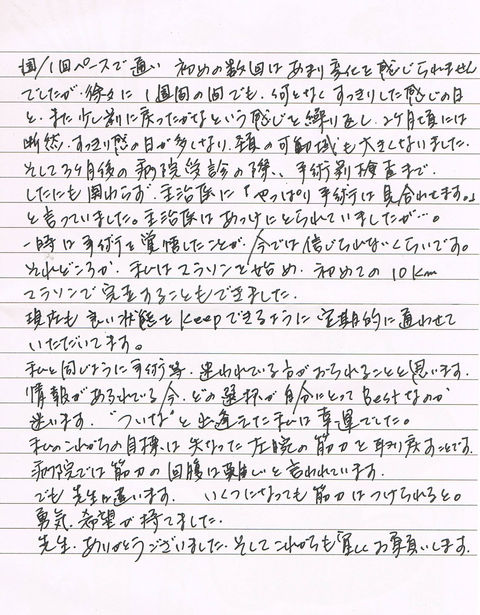 週/1回ペースで通い 初めの数回はあまり変化を感じられません
でしたが、徐々に1週間の間でも、何となくすっきりした感じの日
と、また少し前に戻ったかなという感じを繰り返し、2ヶ月頃には
断然、すっきり感の日が多くなり、頚の可動域も大きくなりました。
そして3ヶ月後の病院受診の際、手術前検査まで
したにも関わらず、主治医に「やっぱり手術は見合わせます。」
と言っていました。主治医はあっけにとられていましたが…。
一時は手術を覚悟したことが、今では信じられないくらいです。
それどころか、私はマラソンを始め、初めての10km
マラソンで完走することもできました。
現在も良い状態をKeepできるように定期的に通わせて
いただいてます。
私と同じように手術等、迷われている方がおられることと思います。
情報があふれている今、どの選択が自分にとってBestなのか
迷います。"ついな"と出逢えた私は幸運でした。
私のこれからの目標は失なった左腕の筋力を取り戻すことです。
病院では筋力の回復は難しいと言われています。
でも先生は違います。 いくつになっても筋力はつけられると。
勇気、希望が持てました。
先生、ありがとうございました。そしてこれからも宜しくお願いします。